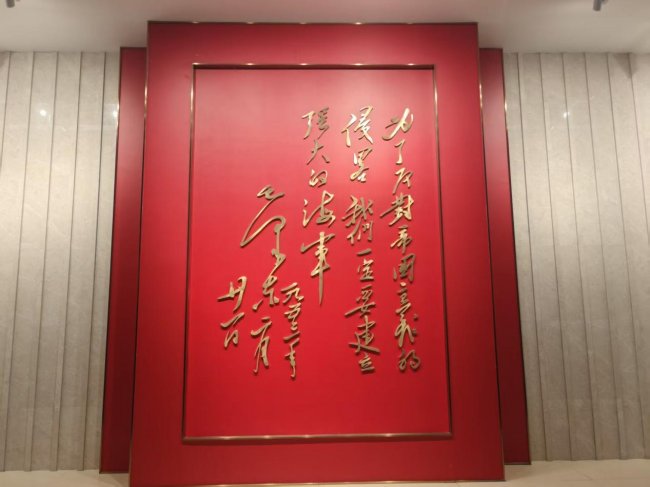 为了反對帝國主義的
侵略我們一定要建立
强大的海軍
毛泽东
一九五三年
二月
廿一日